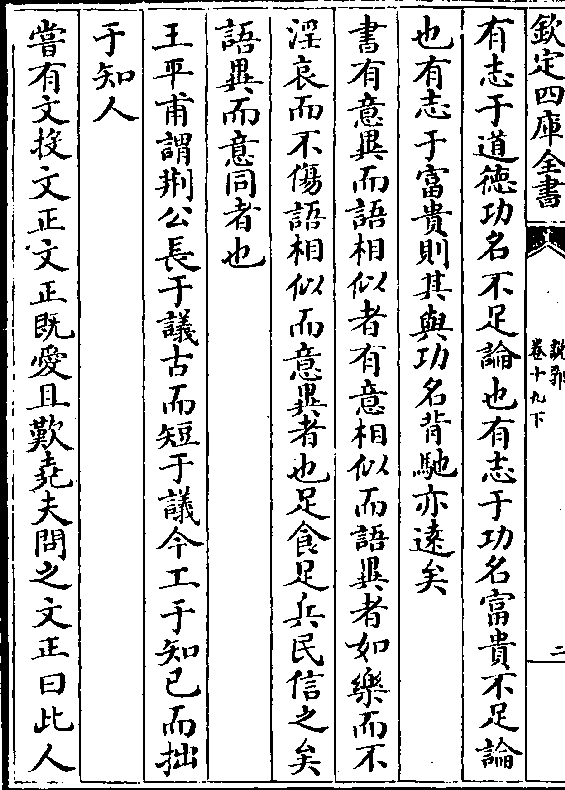 欽定四庫全書
說郛
卷十九下
二
有志于道徳功名不足論也有志于功名富貴不足論
也有志于富貴則其與功名背馳亦逺矣
書有意異而語相似者有意相似而語異者如樂而不
淫哀而不傷語相似而意異者也足食足兵民信之矣
語異而意同者也
王平甫謂荆公長于議古而短于議今工于知已而拙
于知人
嘗有文投文正文正既愛且歎堯夫問之文正曰此人